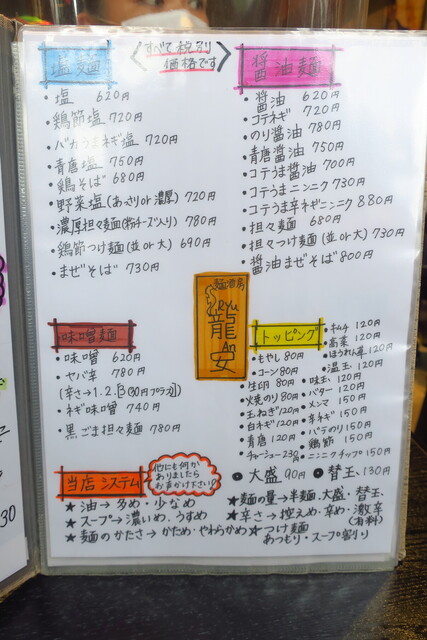 塩麺
すべて税別
価格です
・塩 620円
・鶏節塩 720円
・バカうまネギ塩 720円
・青唐塩 750円
・鶏そば 680円
・野菜塩(あっさりor濃厚) 720円
・濃厚担々麺(粉チーズ入り) 780円
・鶏節つけ麺(並or大) 690円
・まぜそば 730円
醤油麺
・醤油 620円
・コテネギ 720円
・のり醤油 780円
・青唐醤油 750円
・コテうま醤油 700円
・コテうまニンニク 730円
・コテうま辛ネギニンニク 880円
・担々麺 680円
・担々つけ麺(並or大) 730円
・醤油まぜそば 800円
麺酒房
Ryu
龍
An
安
味噌麺
・味噌 620円
・ヤバ辛 780円
(辛さ→1.2.[3(30円プラス)])
・ネギ味噌 740円
・黒ごま担々麺 780円
トッピング
・もやし 80円
・コーン 80円
・生卵 80円
・焼のり 80円
・玉ねぎ 120円
・白ネギ 120円
・青唐 120円
・チャーシュー 230
・キムチ 120円
・高菜 120円
・ほうれん草 120円
・温玉 120円
・味玉 120円
・バター 120円
・メンマ 150円
・辛ネギ 150円
・バラのり 150円
・鶏節 150円
・ニンニクチップ 150円
大盛 90円 替玉 130円
当店システム
他にも何か
ありましたら
お声かけ下さい!
★油→多め・少なめ
★スープ→濃いめ、うすめ
★麺のかたさ→かため・やわらかめ
★麺の量→半麺、大盛、替玉
★辛さ→控えめ・辛め・激辛
(有料)
★つけ麺
あつもり・スープ割り
30